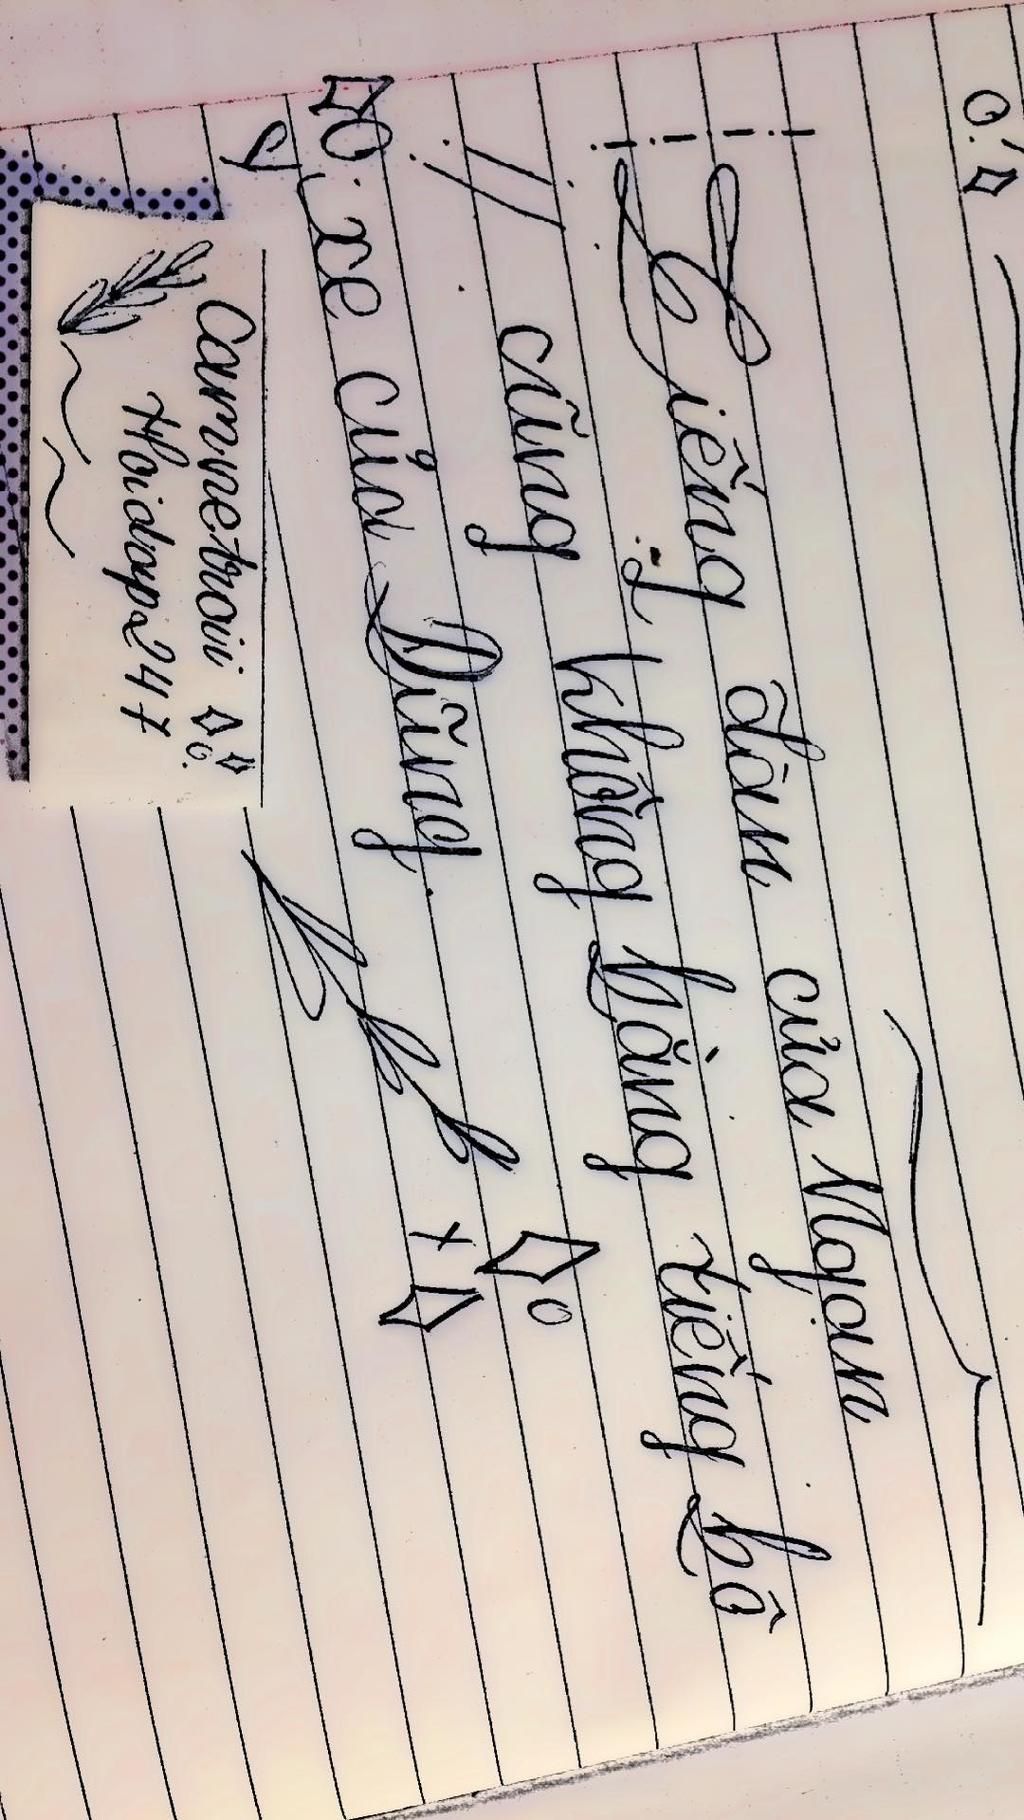 Tiếng đàn của Mọan
cũng không bằng tiếng bô
xe của Dũng.
Camnetwi
Hoidap247